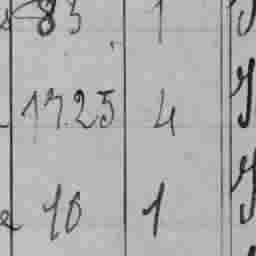 83 1
1725 4
10 1